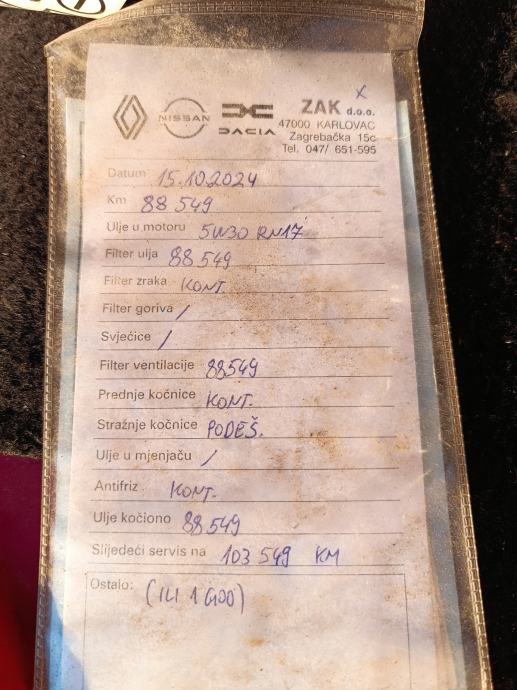 NISSAN
DACIA
ZAK d.o.o.
47000 KARLOVAC
Zagrebačka 15c
Tel. 047/ 651-595
Datum 15.10.2024
Km 88 549
Ulje u motoru 5W30 RN17
Filter ulja 88 549
Filter zraka KONT.
Filter goriva /
Svjećice /
Filter ventilacije 88549
Prednje kočnice KONT.
Stražnje kočnice PODEŠ.
Ulje u mjenjaču /
Antifriz KONT.
Ulje kočiono 88 549
Slijedeći servis na 103 549 KM
Ostalo: (ILI 1 GOD)